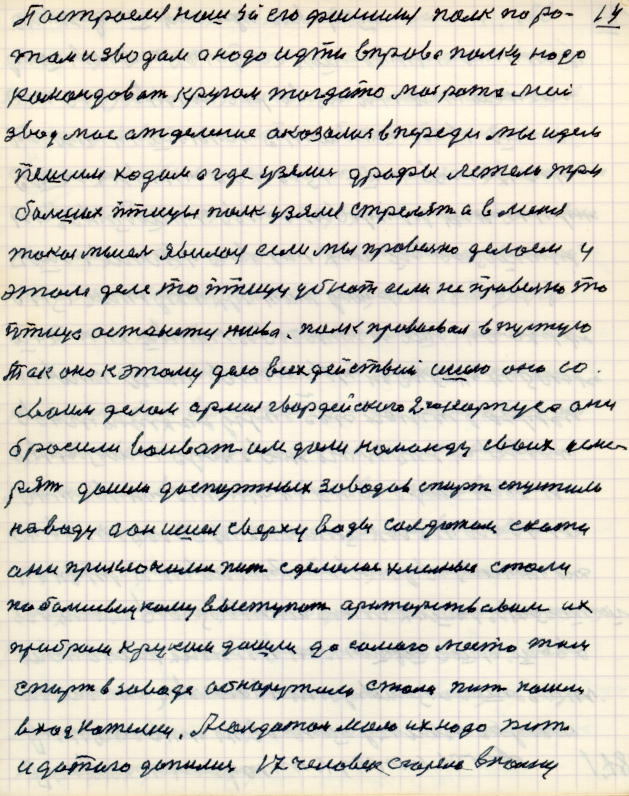 Построели наш 5й его фамилия полк по ро- 14
там и зводам а надо идти вправа полку надо
командоват кругам тогдато моя рота мой
звод мое отделение оказались впереди мы идем
пешим ходам а где узялись драфы летели три
больших птицы полк узялся стрелят а в меня
такая мысел явилася если мы правельно делаем у
этом деле то птицу убют если не правельно то
птица останется жива. полк провоевал в пустую
Так оно к этому дело всех действий шло оно со
своим делам армия гвардейского 2го корпуса они
бросили воеват им дали команду своих
дошли до спортных заводов спирт спустили
на воду а он сверху воды солдатам
они приклонились пит сделались хмелные стали
по болшевицкому выступат их
прибрали круком дошли до самого места там
спирт в заводе обнаружили стали пит пошли
в ход котелки. А солдатам мало их надо пит
и до того допились 17 человек сгорело